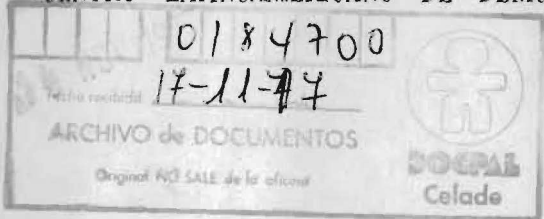 LATINOAMERICANO DE
0184700
Fecha recibida 17-11-77
ARCHIVO de DOCUMENTOS
Original NO SALE de la oficina
DOCPAL
Celade